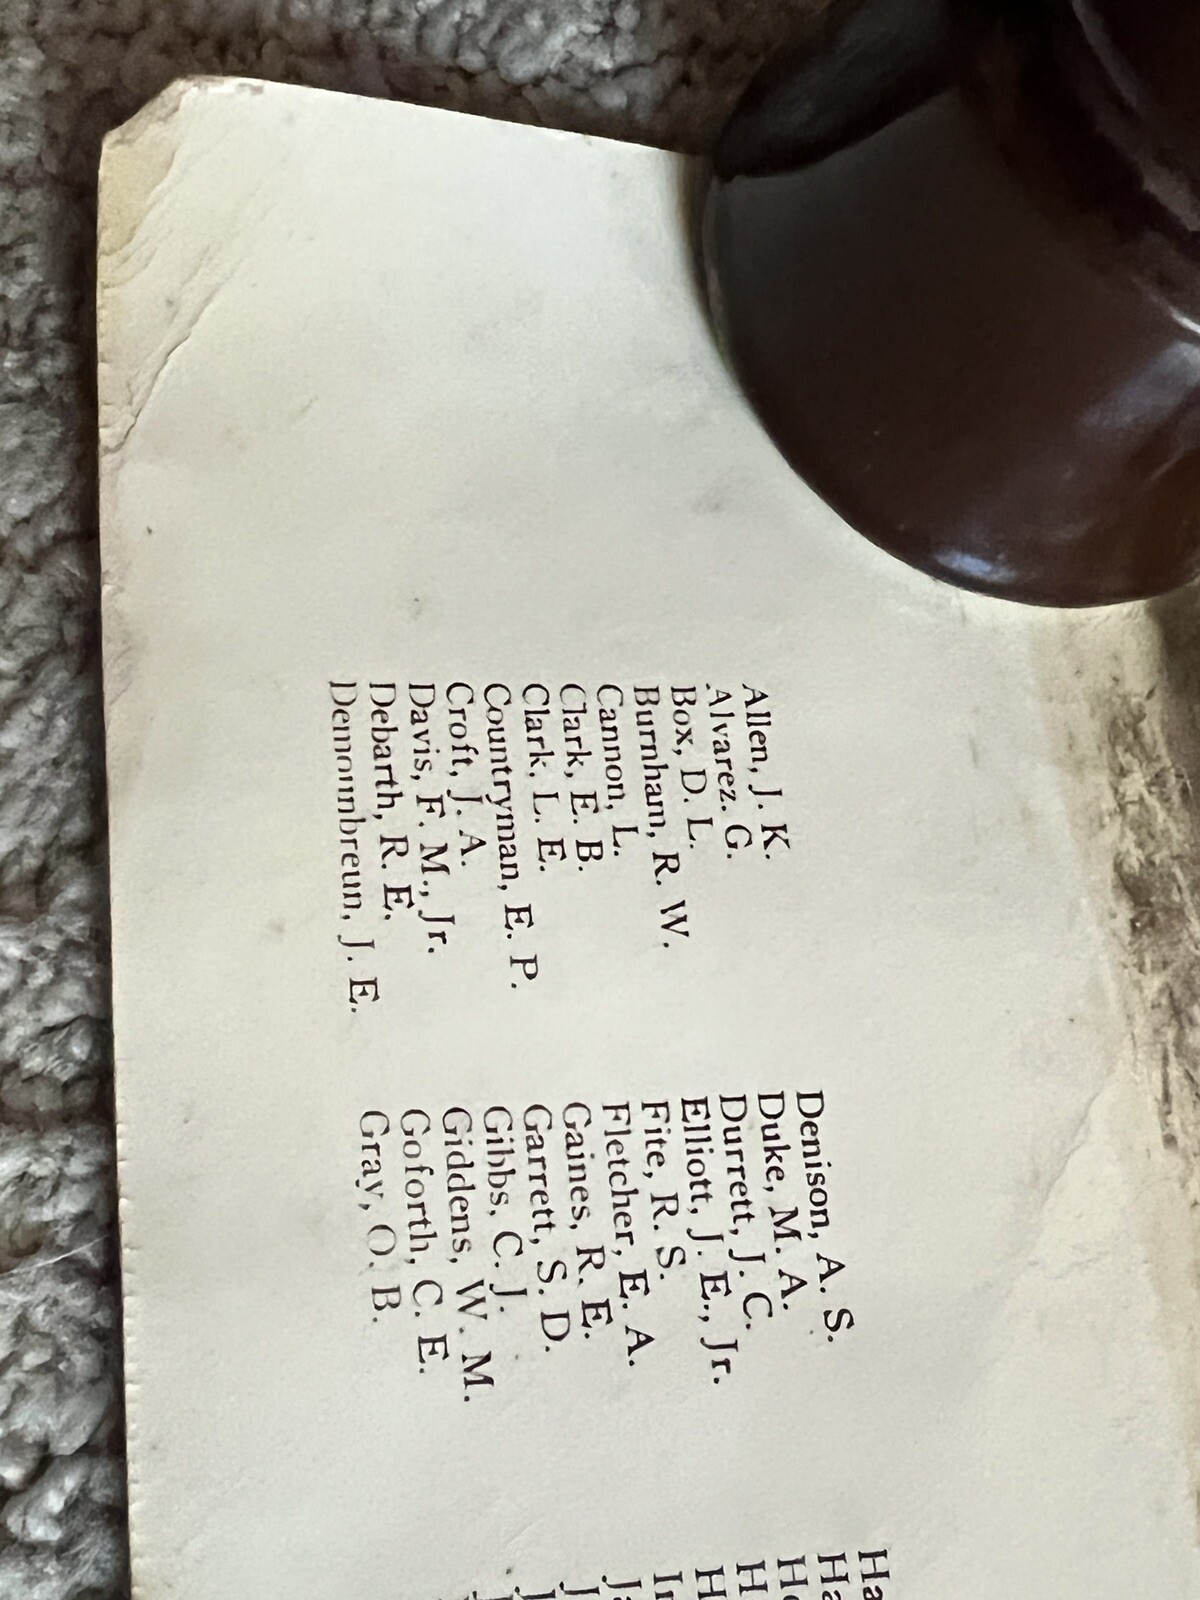 Allen, J. K.
Alvarez. G.
Box, D. L.
Burnham, R. W.
Cannon, L.
Clark, E. B.
Clark, L. E.
Countryman, E. P.
Croft, J. A.
Davis, F. M., Jr.
Debarth, R. E.
Demonnbreun, J. E.
Denison, A. S.
Duke, M. A.
Durrett, J. C.
Elliott, J. E., Jr.
Fite, R. S.
Fletcher, E. A.
Gaines, R. E.
Garrett, S. D.
Gibbs, C. J.
Giddens, W. M.
Goforth, C. E.
Gray, O. B.